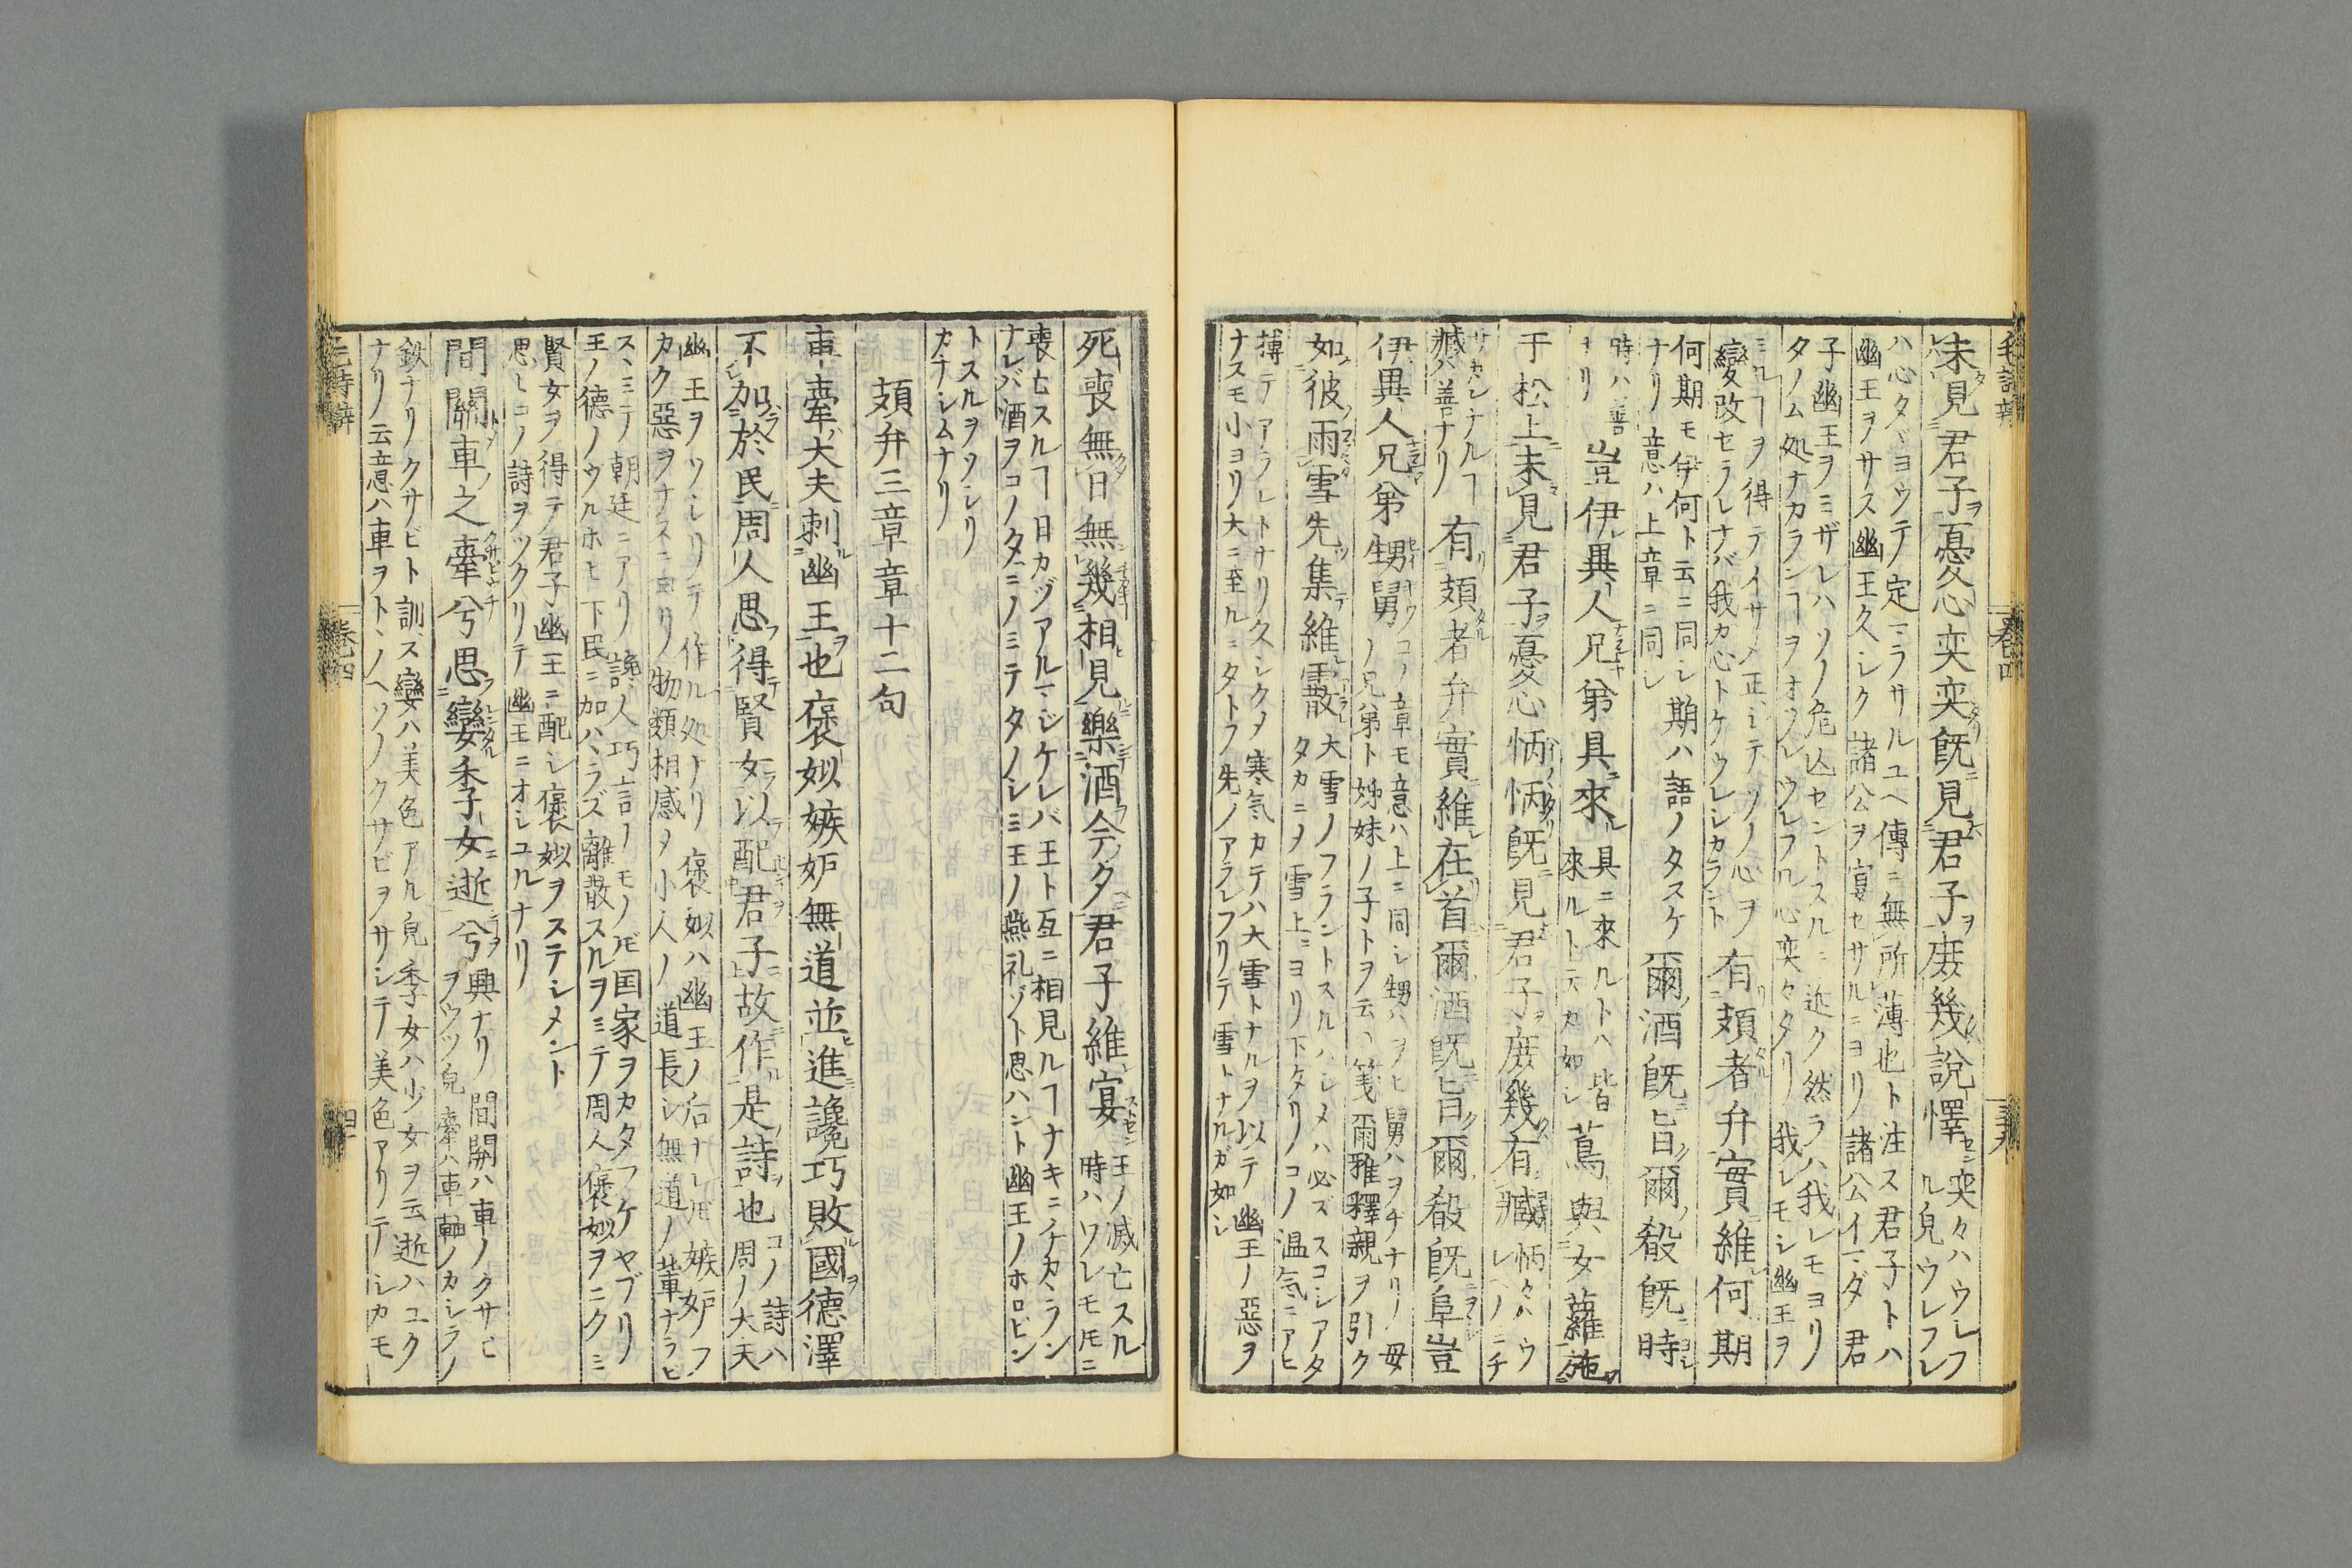 未見君子憂心奕奕既見君子庶幾説懌 奕々ハウレフ
ル皃ウレフレ
ハ心タヾヨウテノ定マラサルユヘ傳ニ無所薄也ト注ス君子トハ
幽王ヲノサス幽王久シク諸公ヲ宴セサルニヨリ諸公イマダ君
子幽王ヲミザレハソノ危亡セントスルニ近ク然ラハ我レモヨリ
タノム処ナカランヿヲオソレウレフル心奕々タリ我レモシ幽王ヲ
ミルヿヲ得テイサメ正シテソノ心ヲ
變改セラレナバ我カ心トケウレシカラント 有頍者弁實維何期
何期モ伊何ト云ニ同シ期ハ語ノタスケ
ナリ意ハ上章ニ同シ 爾酒既旨爾殽既時
時ハ善
ナリ 豈伊異人兄弟具來 具ニ來ルトハ皆
來ルト云カ如シ 蔦與女蘿施
于松上未見君子憂心怲怲既見君子庶幾有臧 怲々ハウ
レヘノミチ
サカンナルヿ
臧ハ善ナリ 有頍者弁實維在首爾酒既旨爾殽既阜豈
伊異人兄弟甥舅 コノ章モ意ハ上ニ同シ甥ハヲヒ舅ハヲヂナリ母
ノ兄弟ト姊妹ノ子トヲ云箋爾雅釋親ヲ引ク
如彼雨雪先集維霰 大雪ノフラントスルハシメハ必ズスコシアタ
タカニメ雪上ニヨリ下タリノコノ温気ニアヒ
摶テアラレトナリクシクメ寒気カテハ大雪トナルヲ以テ幽王ノ惡ヲ
ナスモ小ヨリ大ニ至ルニタトフ先ノアラレフリテ雪トナルガ如シ
死喪無日無幾相見樂酒今夕君子維宴 王ノ滅亡スル
時ハワレモ𪜈ニ
喪亡スルヿ日カヅアルマジケレバ王ト互ニ相見ルヿナキニチカカラン
ナレバ酒ヲコノタニノミテタノシミ王ノ燕礼ゾト思ハント幽王ノホロビン
トスルヲソシリ
カナシムナリ
頍弁三章章十二句
車舝大夫刺幽王也褒姒嫉妒無道並進讒巧敗國德澤
不加於民周人思得賢女以配君子故作是詩也 コノ詩ハ
周ノ大夫
幽王ヲソシリテ作ル処ナリ褒姒ハ幽王ノ后ナレ𪜈嫉妒フ
カク惡ヲナスニヨリ物類相感メ小人ノ道長シ無道ノ輩ナラビ
スヽミテ朝廷ニアリ讒人巧言ノモノ𪜈国家ヲカタフケヤブリ
王ノ德ノウルホヒ下民ニ加ハラズ離散スルヲミテ周人褒姒ヲニクミ
賢女ヲ得テ君子幽王ニ配シ褒姒ヲステシメント
思ヒコノ詩ヲツクリテ幽王ニオシユルナリ
間關車之舝兮思孌季女逝兮 興ナリ間關ハ車ノクサビ
ヲウツ皃舝ハ車軸ノカシラノ
鉄ナリクサビト訓ス孌ハ美色アル皃季女ハ少女ヲ云逝ハユク
ナリ云意ハ車ヲトヽノヘソノクサビヲサシテ美色アリテシカモ
毛詩辯
卷四
四一